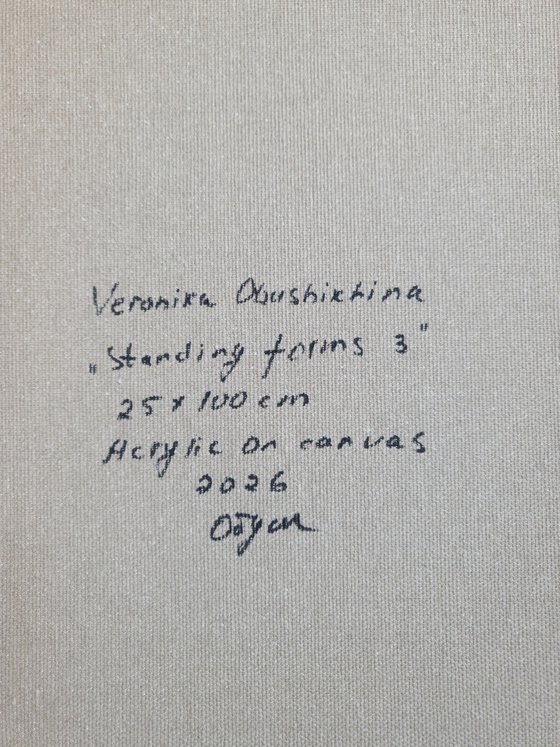 Veronika Obushikhina
„Standing forms 3"
25 x 100 cm
Acrylic on canvas
2026